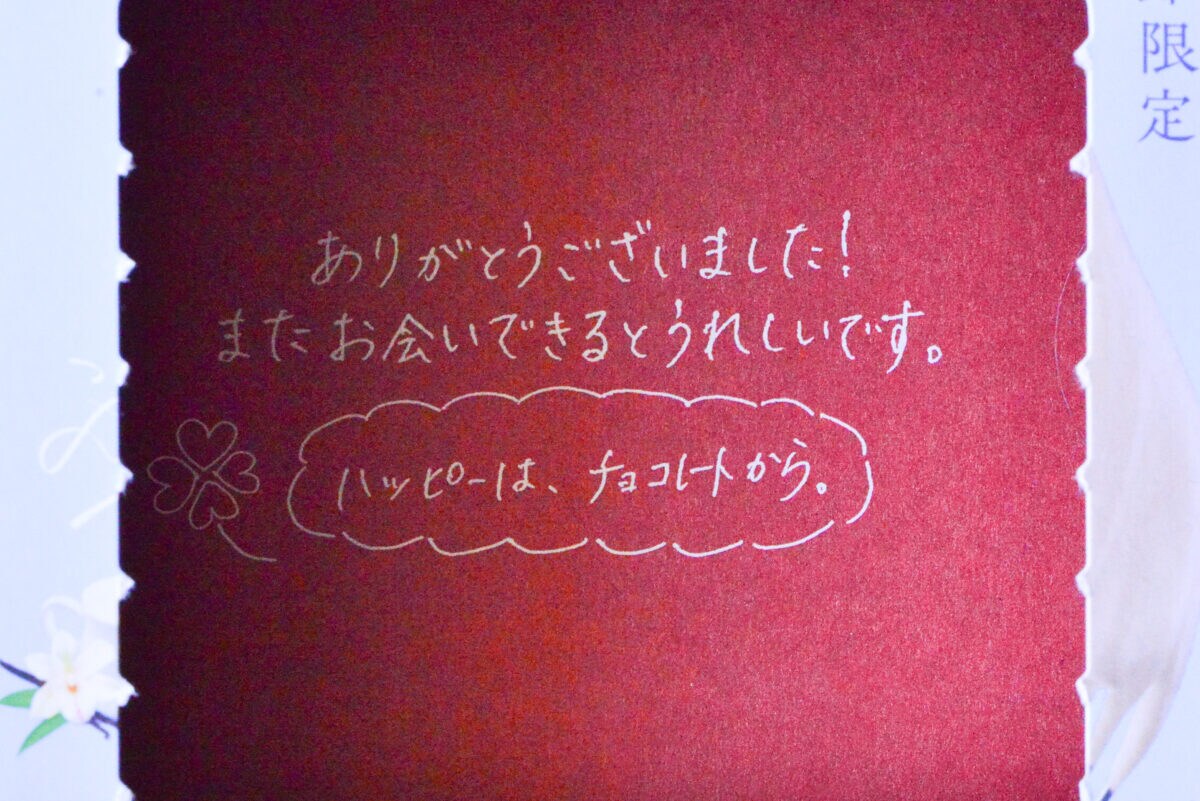 ありがとうございました!
またお会いできるとうれしいです。
ハッピーは、チョコレートから。
限定